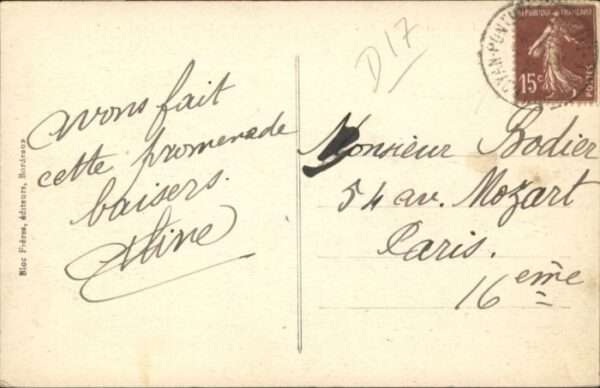 D17
RÉPUBLIQUE FRANÇAISE
15c
POSTES
avons fait
cette promenade
baisers.
Aline
Monsieur Bodier
54 av. Mozart
Paris.
16 eme
Bloc Frères, éditeurs, Bordeaux